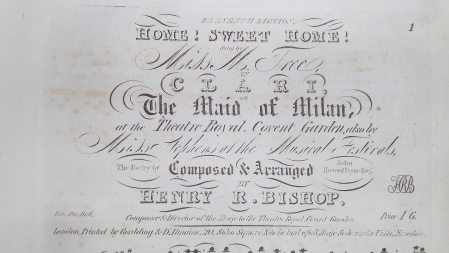 ELEVENTH EDITION.
1
HOME! SWEET HOME!
Sung by
Miss M. Tree,
IN
CLARI,
OR
The Maid of Milan,
at the Theatre Royal, Covent Garden, also by
Miss Stephens at the Musical Festivals,
The Poetry by Composed & Arranged John Howard Payne Esq.
BY
HENRY R. BISHOP,
HRB
Ent. Sta. Hall, Price 1/6.
Composer & Director of the Music to the Theatre Royal, Covent Garden.
London, Printed by Goulding & D'Almaine, 20, Soho Square & to be had of all Music Sellers